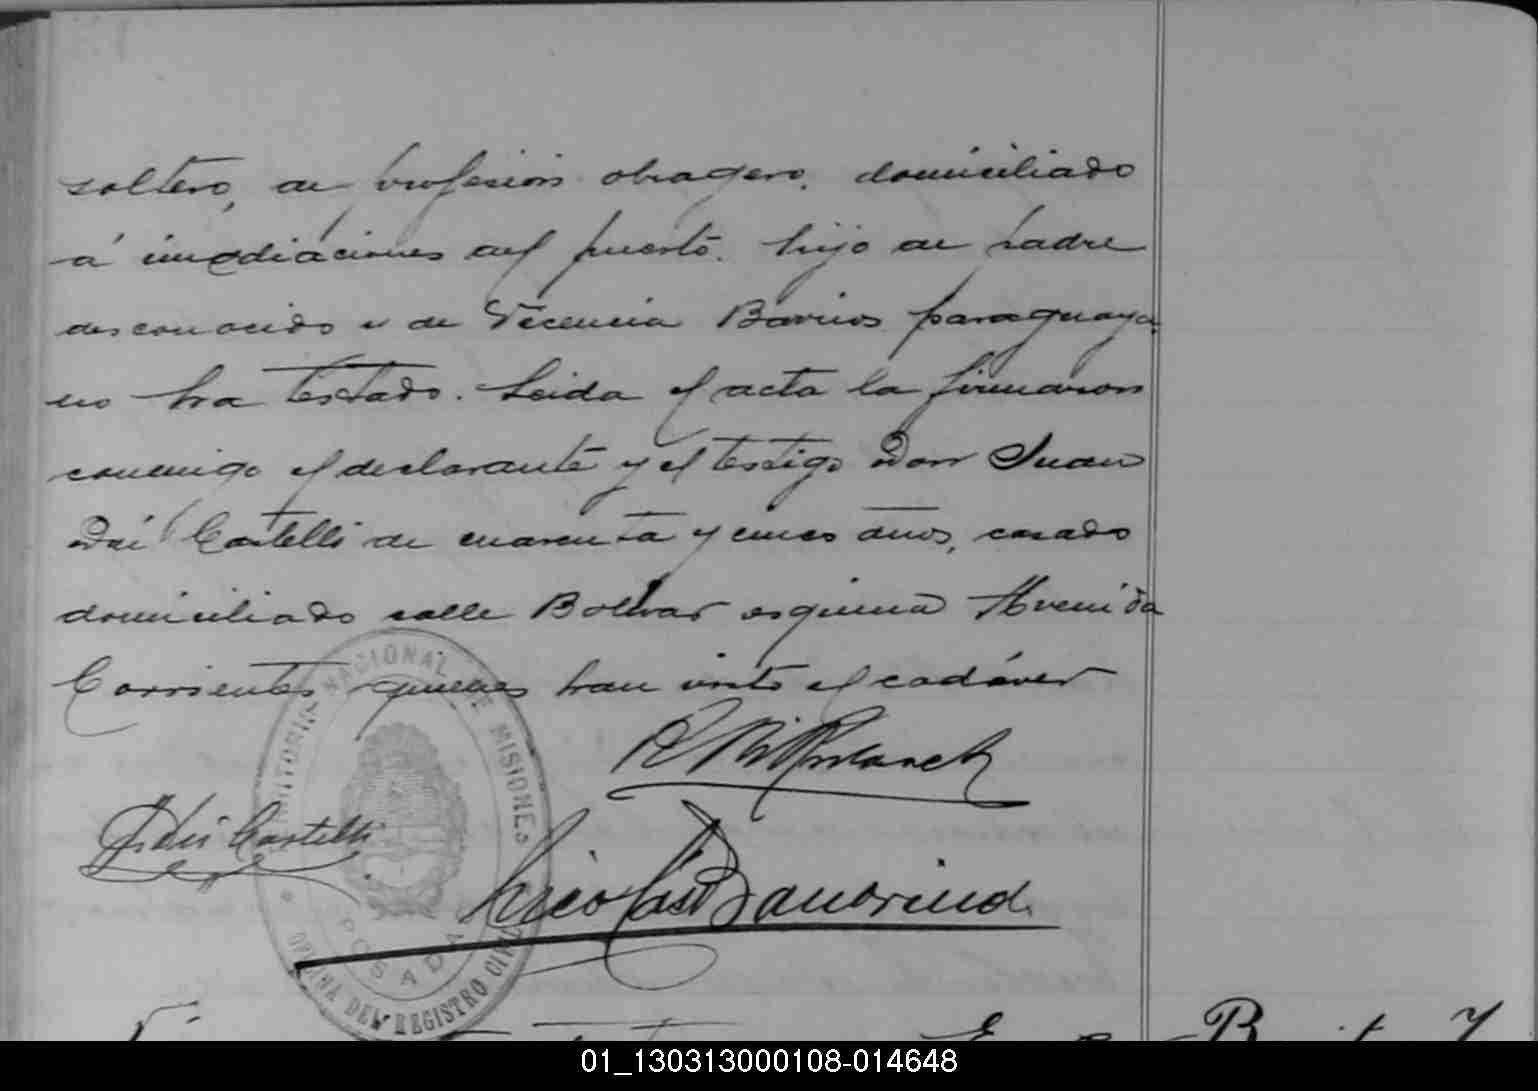 soltero, de profesion obragero, domiciliado
á inmediaciones del puerto. hijo de padre
desconocido y de Vicencia Barrios paraguaya
no ha testado. Leida el acta la firmaron
conmigo el declarante y el testigo Don Juan
Castelli de cuarenta y cinco años, casado
domiciliado calle Bolivar esquina Avenida
Corrientes quienes han visto el cadáver
Castelli
Nicolás
NACIONAL DE MISIONES
POSADAS
OFICINA DEL REGISTRO CIVIL
01_130313000108-014648